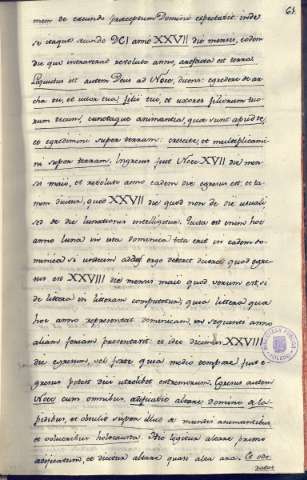 63
men de exeundo praeceptum Domini expectavit. inde
si itaque eundo DCI anno XXVII die mensis, eodem
die quo intraverat revoluto anno, arefacta est terra.
Loquutus est autem Deus ad Noco, dicens: egredere de ar-
cha tu, et uxor tua filii tui, et uxores filiorum tuo-
rum tecum, cunctaque animantia, quae sunt apud te,
et egredimini super terram: crescite, et multiplicami-
ni super terram. Ingresus fuit Noco XVII die men-
sis maii, et revoluto anno eadem die egresus est, et ta-
men dicitur, quod XXVII die quod non de die usuali
sed de die lunationis intelligitur. Iuxta est enim hoc
anno luna in ista dominica tota erit in eadem do-
minica si vestrum adest ergo debent dicere quod egre-
sus est XXVIII die mensis maii quod verum est, si
de littera in litteram computetur, quia littera quae
hoc anno representat dominicam, in sequenti anno
aliam feriam presentant. et ideo dicimus XXVIII
die egresum, vel forte quia medio tempore fuit e-
gresus potest dici utrolibet extremorum. Egresus autem
Noco cum omnibus, aedificavit altare domino de la-
pidibus, et obtulit super illud de mundis animantibus,
et volucribus holocausta. Hic legitur altare primo
aedificatum, et dicitur altare quasi alta ara. Et odo-
ratus